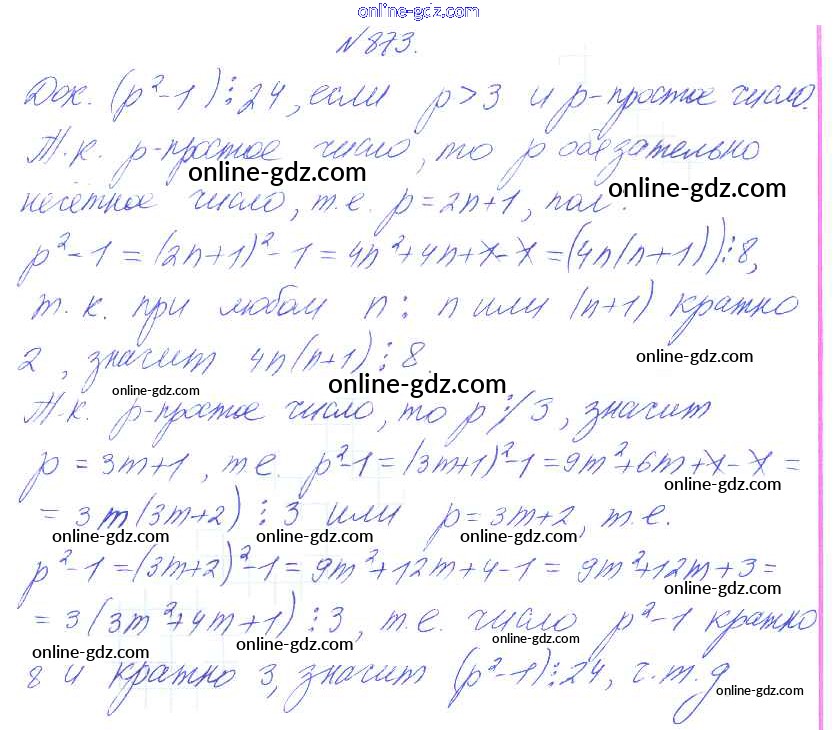 online-gdz.com
№873.
Док. (p²-1)⋮24, если p>3 и p-простое число.
Т.к. p-простое число, то p обязательно
online-gdz.com online-gdz.com
нечётное число, т.е. p=2n+1, пол.
p²-1=(2n+1)²-1=4n²+4n+1-1=(4n(n+1))⋮8,
т.к. при любом n: n или (n+1) кратно
2, значит 4n(n+1)⋮8. online-gdz.com
online-gdz.com online-gdz.com
Т.к. p-простое число, то p⋮̸3, значит
p=3m+1, т.е. p²-1=(3m+1)²-1=9m²+6m+1-1=
online-gdz.com
=3m(3m+2)⋮3 или p=3m+2, т.е.
online-gdz.com online-gdz.com online-gdz.com
p²-1=(3m+2)²-1=9m²+12m+4-1=9m²+12m+3=
online-gdz.com
=3(3m²+4m+1)⋮3, т.е. число p²-1 кратно
online-gdz.com online-gdz.com online-gdz.com
8 и кратно 3, значит (p²-1)⋮24, ч.т.д
online-gdz.com